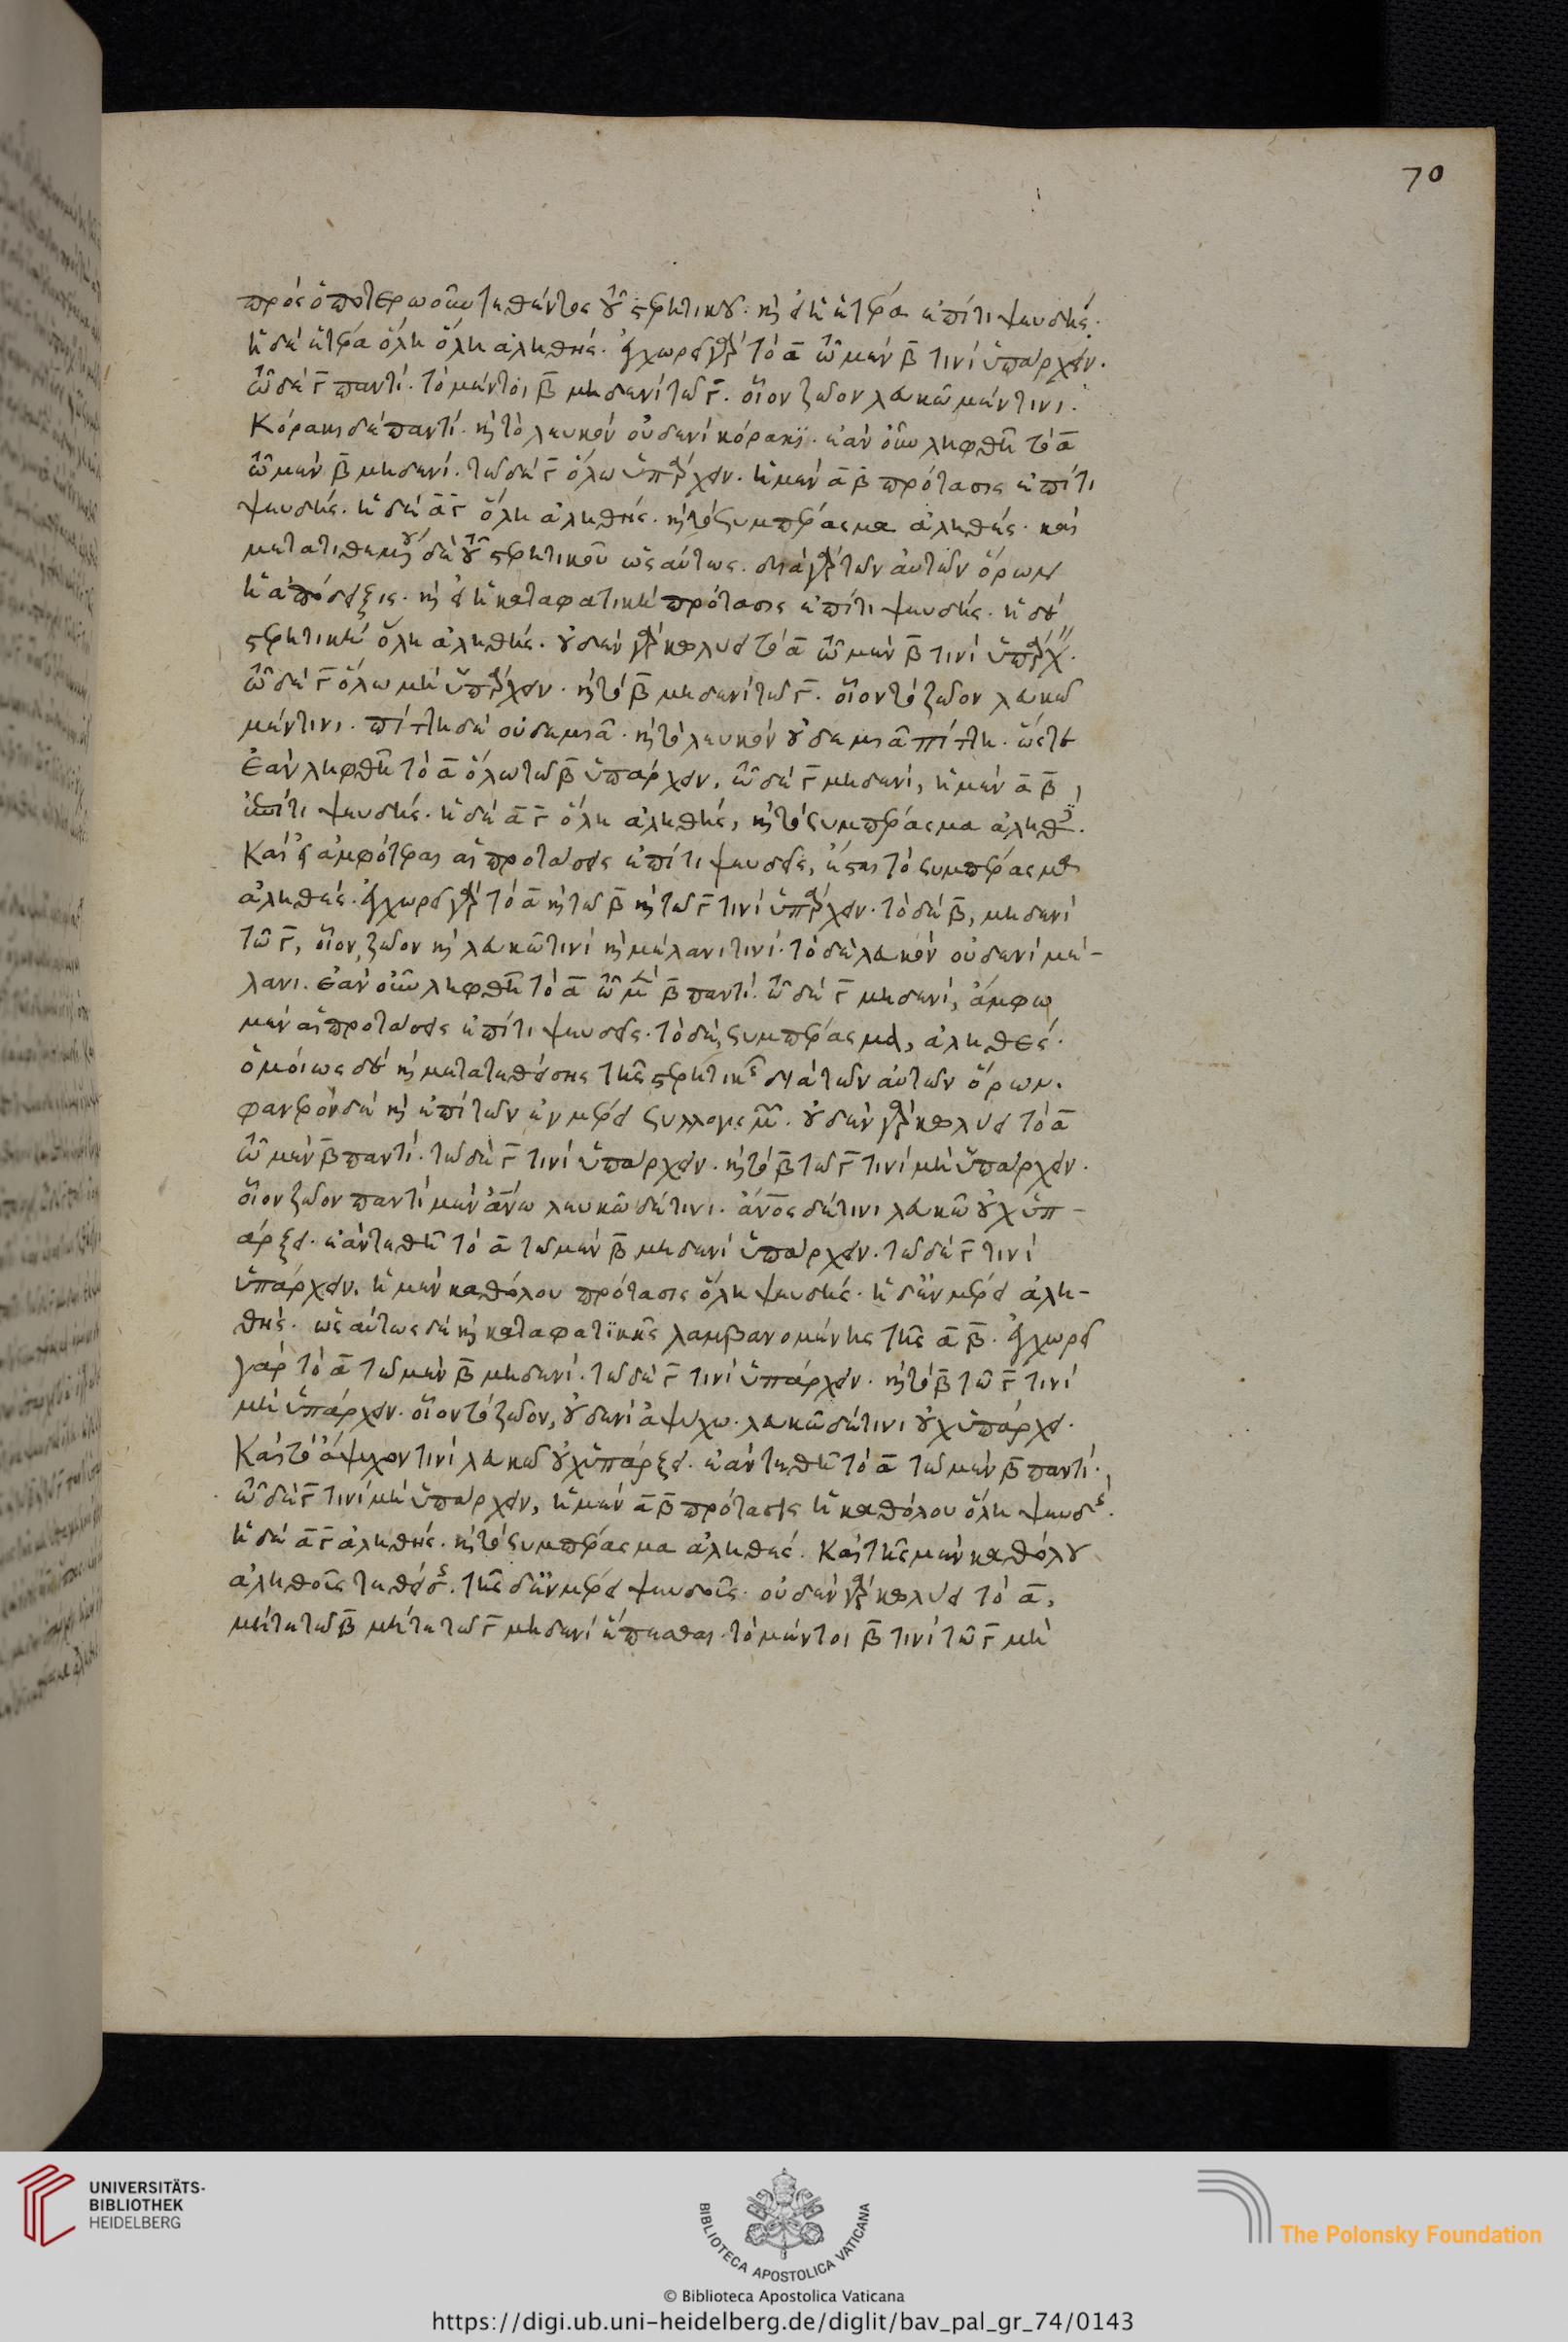 70
πρὸς ὁποτερωοῦν τεθέντος τοῦ στερητικοῦ· καὶ εἰ ἡ ἑτέρα ἐπί τι ψευδής·
ἡ δὲ ἑτέρα ὅλη ὅλη ἀληθής. ἐγχωρεῖ γὰρ τὸ α̅ τῶ μὲν β̅ τινὶ ὑπάρχειν.
τῶ δὲ γ̅ παντί· τὸ μέντοι β̅ μηδενὶ τῶ γ̅. οἷον ζῶον λευκῶ μέν τινι·
κόρακι δὲ παντί· καὶ τὸ λευκὸν οὐδενὶ κόρακϊ. ἐὰν οὖν ληφθῆ τὸ α̅
τῶ μὲν β̅ μηδενί. τῶ δὲ γ̅ ὅλω ὑπάρχειν. ἡ μὲν α̅ β̅ πρότασις ἐπί τι
ψευδής. ἡ δὲ α̅ γ̅ ὅλη ἀληθής. καὶ τὸ συμπέρασμα ἀληθές. καὶ
μετατιθεμένου δὲ τοῦ στερητικοῦ ὡσαύτως. διὰ γὰρ τῶν αὐτῶν ὅρων
ἡ ἀπόδειξις. καὶ εἰ ἡ καταφατικὴ πρότασις ἐπί τι ψευδής. ἡ δὲ
στερητικὴ ὅλη ἀληθής. οὐδὲν γὰρ κωλύει τὸ α̅ τῶ μὲν β̅ τινὶ ὑπάρχ.
τῶ δὲ γ̅ ὅλω μὴ ὑπάρχειν. καὶ τὸ β̅ μηδενὶ τῶ γ̅. οἷον τὸ ζῶον λευκῶ
μέν τινι. πίττη δὲ οὐδεμιᾶ. καὶ τὸ λευκὸν οὐδεμιᾶ πίττη. ὥστε
ἐὰν ληφθῆ τὸ α̅ ὅλω τῶ β̅ ὑπάρχειν, τῶ δὲ γ̅ μηδενί, ἡ μὲν α̅ β̅,
ἐπί τι ψευδής. ἡ δὲ α̅ γ̅ ὅλη ἀληθής, καὶ τὸ συμπέρασμα ἀληθές.
Καὶ εἰ ἀμφότεραι αἱ προτάσεις ἐπί τι ψευδεῖς, ἔσται τὸ συμπέρασμα
ἀληθές. ἐγχωρεῖ γὰρ τὸ α̅ καὶ τῶ β̅ καὶ τῶ γ̅ τινὶ ὑπάρχειν. τὸ δὲ β̅, μηδενὶ
τῶ γ̅, οἷον, ζῶον καὶ λευκῶ τινὶ καὶ μέλανι τινί. τὸ δὲ λευκὸν οὐδενὶ μέ-
λανι. ἐὰν οὖν ληφθῆ τὸ α̅ τῶ μὲν β̅ παντί. τῶ δὲ γ̅ μηδενί, ἄμφω
μὲν αἱ προτάσεις ἐπί τι ψευδεῖς. τὸ δὲ, συμπέρασμα, ἀληθές.
ὁμοίως δὲ καὶ μετατεθείσης τῆς στερητικῆς διὰ τῶν αὐτῶν ὅρων.
φανερὸν δὲ καὶ ἐπὶ τῶν ἐν μέρει συλλογισμῶν. οὐδὲν γὰρ κωλύει τὸ α̅
τῶ μὲν β̅ παντί. τῶ δὲ γ̅ τινὶ ὑπάρχειν. καὶ τὸ β̅ τῶ γ̅ τινὶ μὴ ὑπάρχειν.
οἷον ζῶον παντὶ μὲν ἀν̅ω λευκῶ δέ τινι. ἄν̅ος δέ τινι λευκῶ οὐχ ὑπ-
άρξει. ἐὰν τεθῆ τὸ α̅ τῶ μὲν β̅ μηδενὶ ὑπάρχειν. τῶ δὲ γ̅ τινὶ
ὑπάρχειν. ἡ μὲν καθόλου πρότασις ὅλη ψευδής. ἡ δ' ἐν μέρει ἀλη-
θής. ὡσαύτως δὲ καὶ καταφατϊκῆς λαμβανομένης τῆς α̅ β̅. ἐγχωρεῖ
γὰρ τὸ α̅ τῶ μὲν β̅ μηδενί. τῶ δὲ γ̅ τινὶ ὑπάρχειν. καὶ τὸ β̅ τῶ γ̅ τινὶ
μὴ ὑπάρχειν. οἷον τὸ ζῶον, οὐδενὶ ἀψύχω. λευκῶ δέ τινι οὐχ ὑπάρχει.
Καὶ τὸ ἄψυχον τινὶ λευκῶ οὐχ ὑπάρξει. ἐὰν τεθῆ τὸ α̅ τῶ μὲν β̅ παντί.
τῶ δὲ γ̅ τινὶ μὴ ὑπάρχειν, ἡ μὲν α̅ β̅ πρότασις ἡ καθόλου ὅλη ψευδής.
ἡ δὲ α̅ γ̅ ἀληθής. καὶ τὸ συμπέρασμα ἀληθές. Καὶ τῆς μὲν καθόλου
ἀληθοῦς τεθείσης. τῆς δ' ἐν μέρει ψευδοῦς. οὐδὲν γὰρ κωλύει τὸ α̅,
μήτε τῶ β̅ μήτε τῶ γ̅ μηδενὶ ἕπεσθαι. τὸ μέντοι β̅ τινὶ τῶ γ̅ μὴ
UNIVERSITÄTS-
BIBLIOTHEK
HEIDELBERG
BIBLIOTECA APOSTOLICA VATICANA
The Polonsky Foundation
© Biblioteca Apostolica Vaticana
https://digi.ub.uni-heidelberg.de/diglit/bav_pal_gr_74/0143